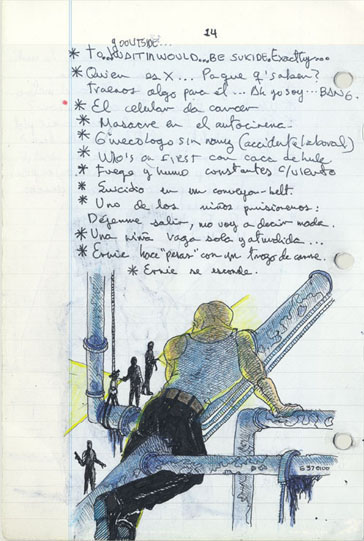 14
go OUTSIDE...
* To WAIT IN WOULD... BE SUICIDE. Exactly...
* Quien es X... Pa que q' salem?
Traenos algo para el ... Ah yo soy... BANG.
* El celular da cancer
* Masacre en el autocinema
* Ginecologo sin (accidente laboral)
* Who's on FIRST con caca de hule
* Fuego y humo constantes c/viento
* Suicidio en un conveyor-belt.
* Uno de los niños prisioneros:
Déjenme salir, no voy a decir nada.
* Una niña vaga sola y aturdida ...
* Ernie hace "peras" con un trozo de carne.
* Ernie se esconde.